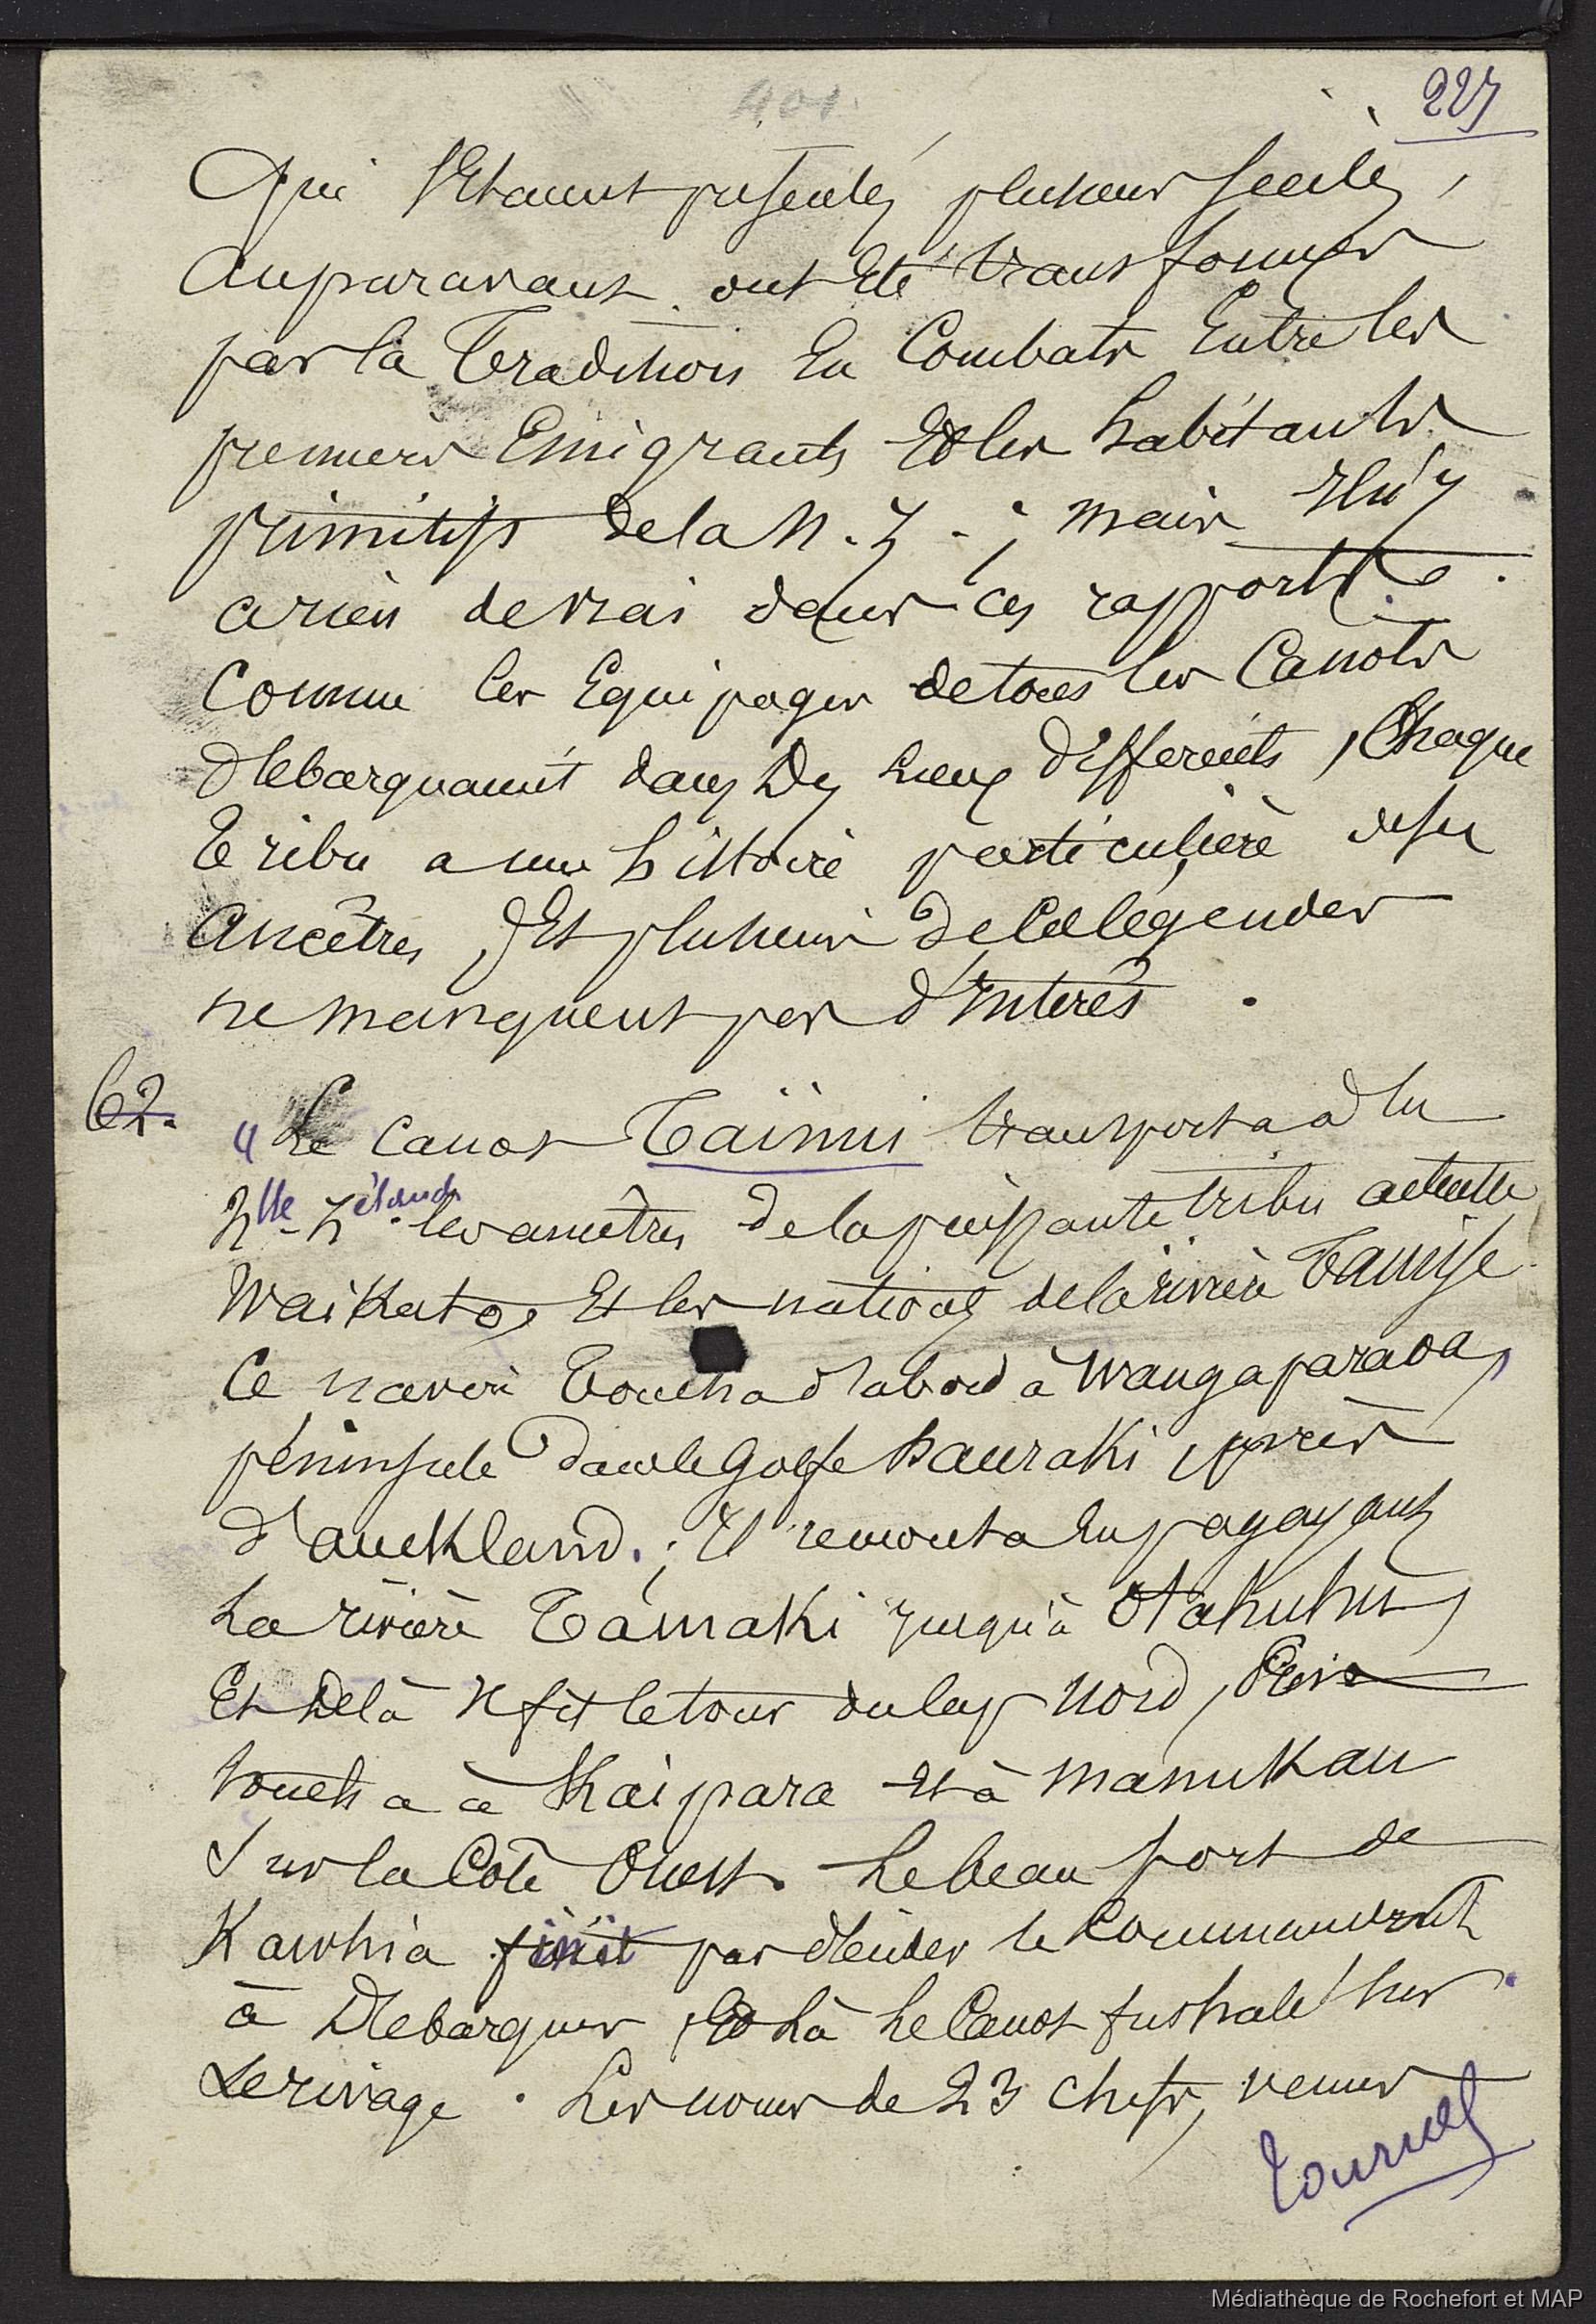 401.
227
Qui s'étaient présentés plusieurs siècles,
auparavant, ont été transformés
par la Tradition En Combats Entre les
premiers Emigrants Et les habitants
primitifs de la N. Z. ; mais Il n'y
a rien de vrai dans ces rapports.
Comme les Equipages de tous les Canots
débarquaient dans des lieux différents, Chaque
Tribu a une histoire particulière de ses
Ancêtres, Et plusieurs de Ces légendes
ne manquent pas d'Interês.
62.
"Le Canot Taïnui transporta à la
Nlle-Zélande les ancêtres de la puissante tribu actuelle
Waikato, Et les nations de la rivière Tamise
Ce navire Toucha d'abord à Wangaparaoa,
péninsule dans le Golfe hauraki, près
d'auckland. ; Il remonta En pagayant
La rivière Tamaki jusqu'à Otahuhu,
Et De là Il fit le tour du Cap Nord, Puis
toucha à Kaipara Et à Manukau
Sur la Côte Ouest. Le beau port de
Kawhia finit par décider le Commandant
à Débarquer, Et Là Le Canot fut halé sur
Le rivage. Les noms de 23 chefs, venus
Tournez
Médiathèque de Rochefort et MAP